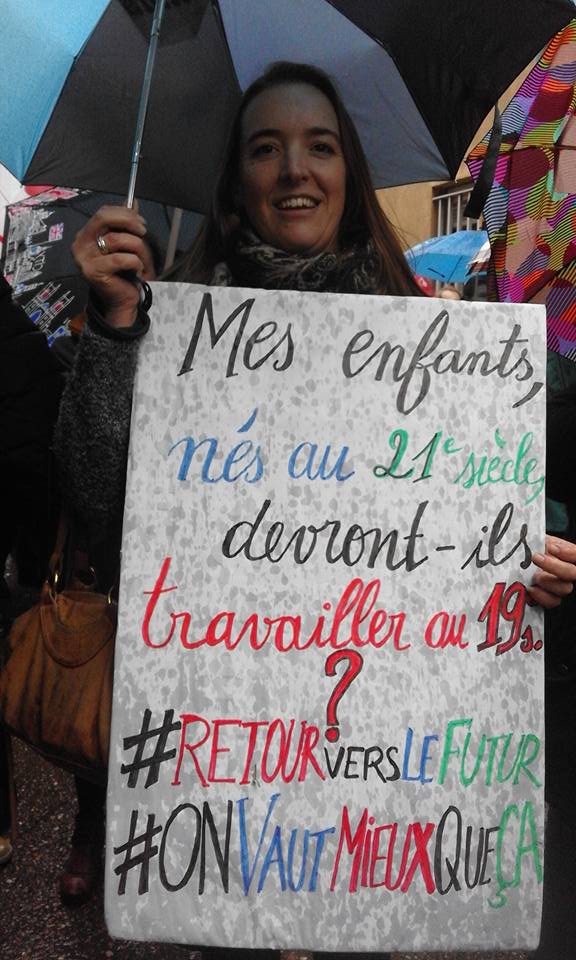 Mes enfants,
nés au 21e siècle,
devront-ils
travailler au 19s.
?
#RETOURVERSLEFUTUR
#ONVAUTMIEUXQUEÇA